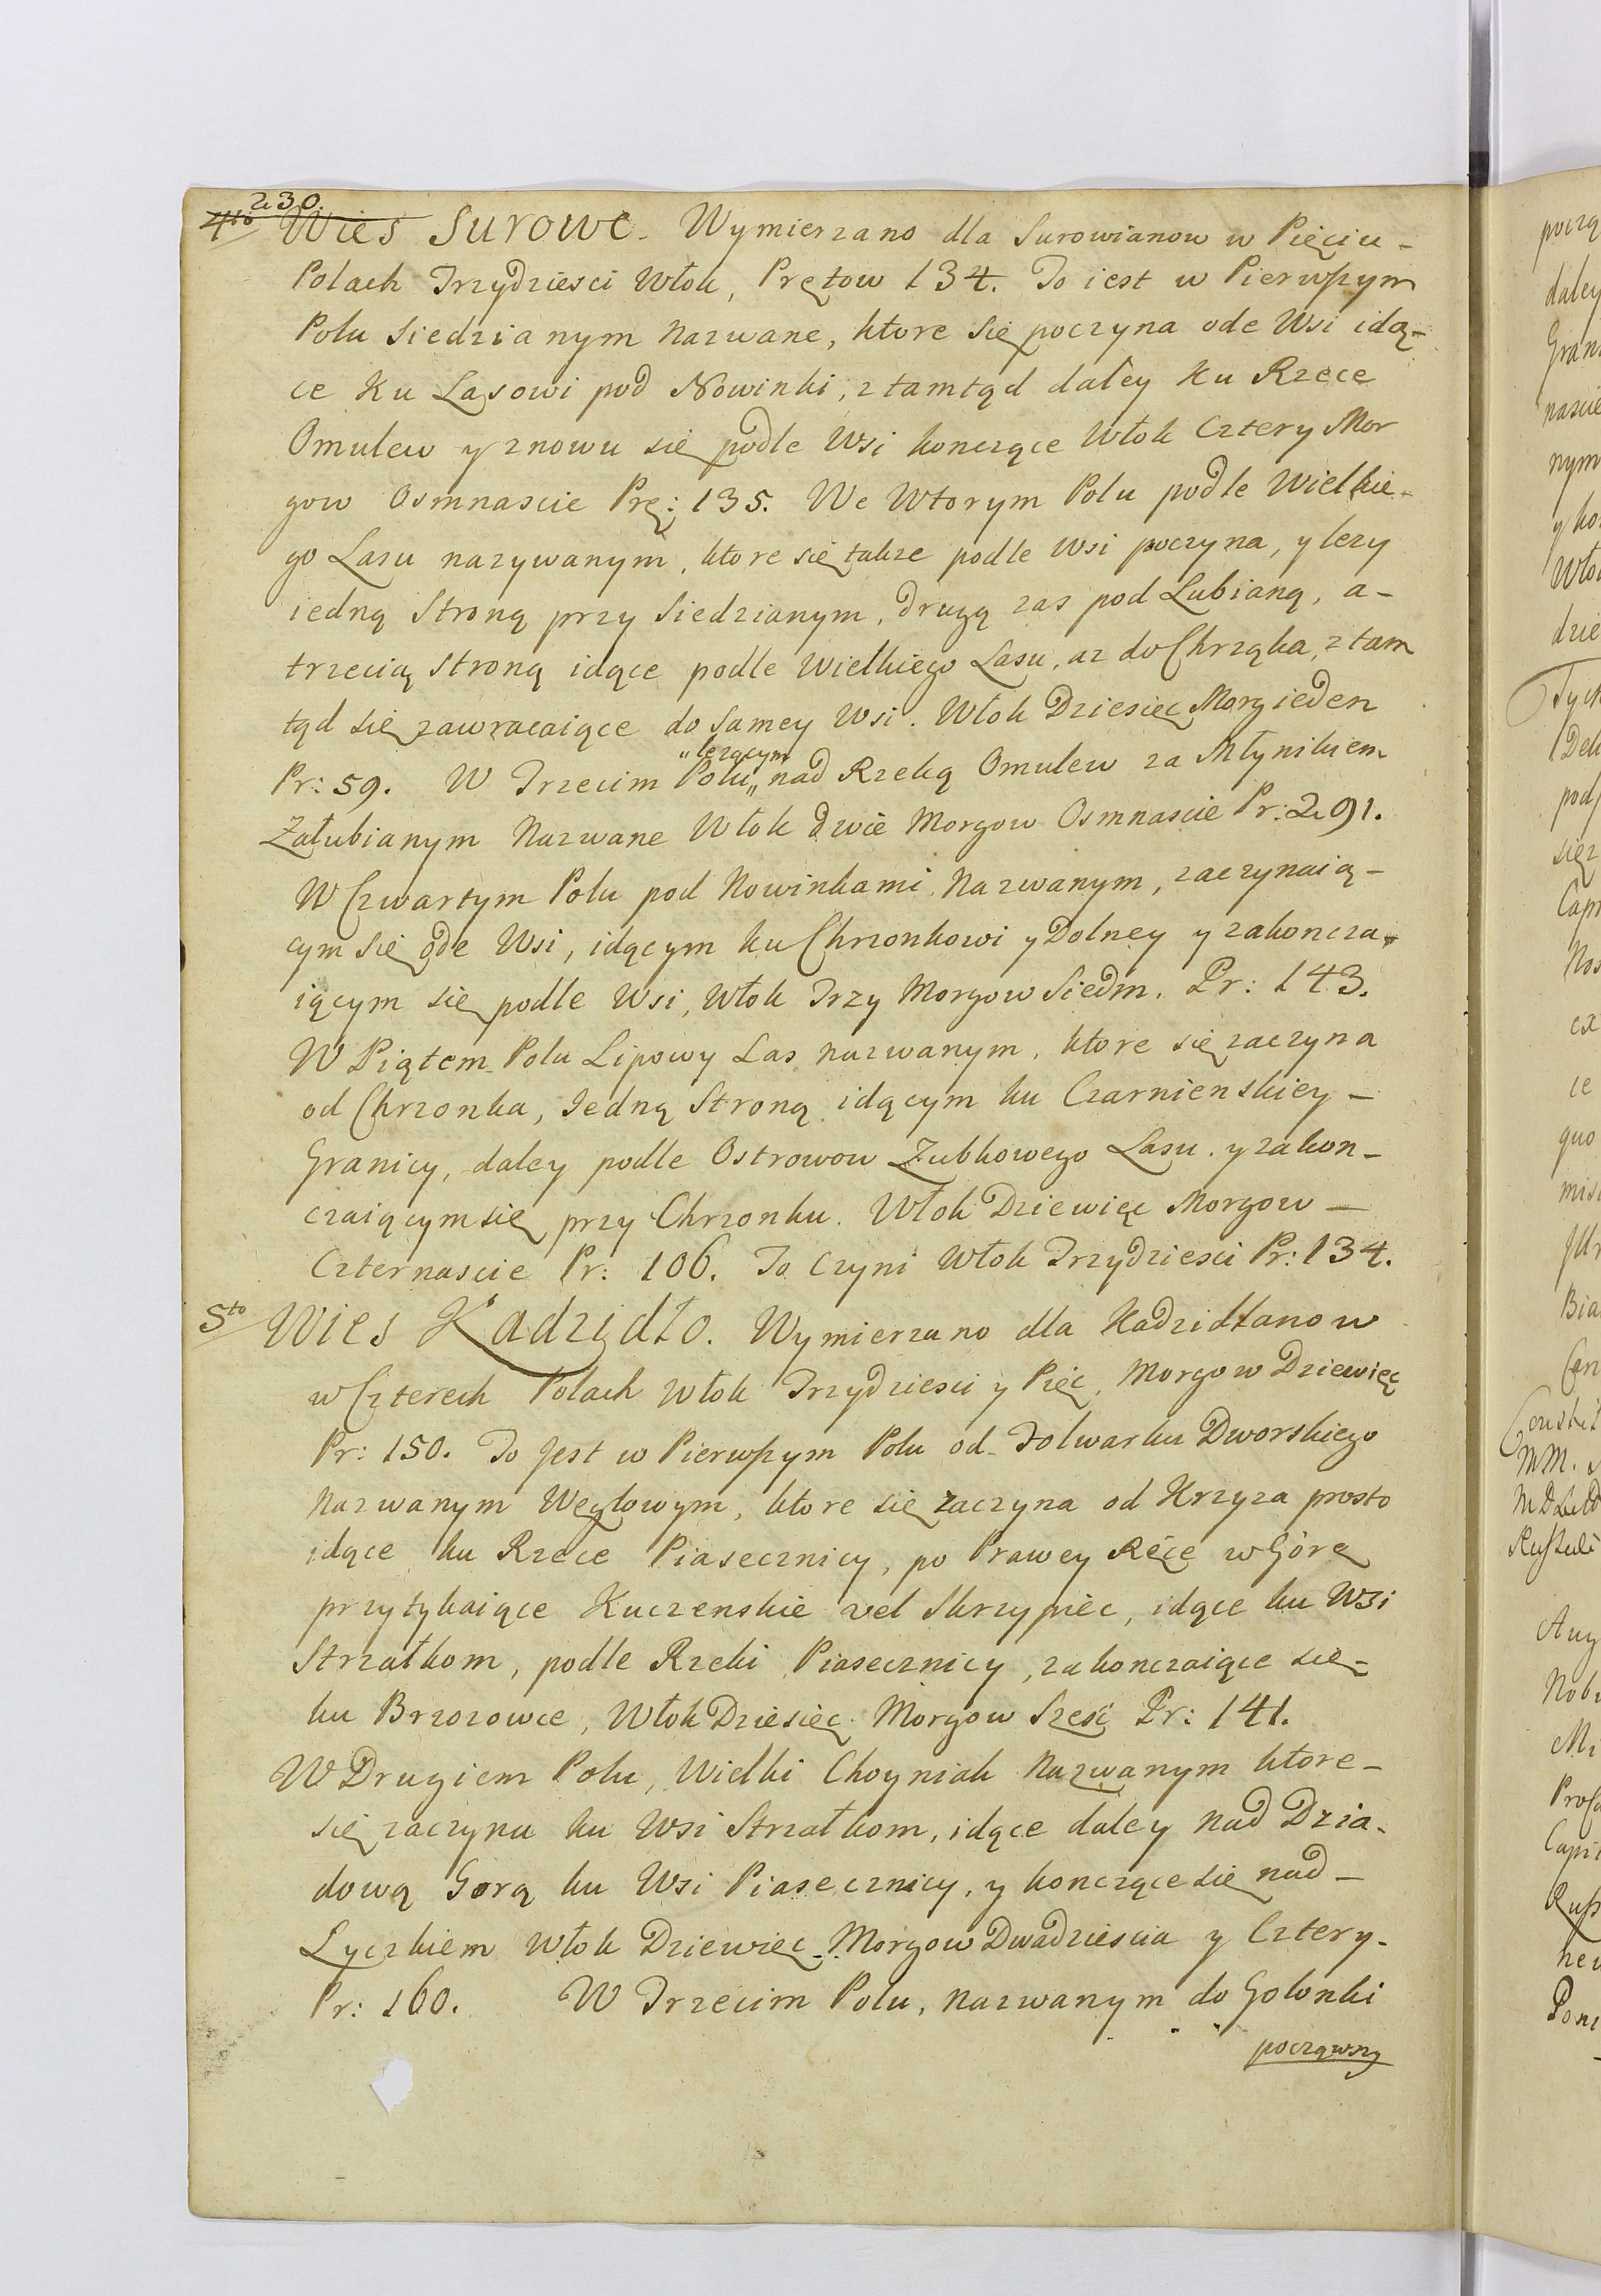 230.
4to Wies Surowe. Wymierzano dla Surowianow w Pięciu-
Polach Trzydziesci Włok, Prętow 134. To iest w Pierwszym
Polu Siedzianym Nazwane, ktore się poczyna ode Wsi idą-
ce Ku Lasowi pod Nowinki, z tamtąd daley Ku Rzece
Omulew y znowu się podle Wsi konczące Włok Cztery Mor
gow Osmnascie Prę: 135. We Wtorym Polu podle Wielkie-
go Lasu nazywanym, ktore się także podle Wsi poczyna, y lezy
iedną Stroną przy Siedzianym, drugą zas pod Lubianą, a-
trzecią Stroną idące podle Wielkiego Lasu, az do Chrząka, z tam
tąd się zawracaiące do Samey Wsi. Włok Dziesięc Morg ieden
„lezącym
Pr: 59. W Trzecim Polu„ nad Rzeką Omulew za Młynikiem
Załubianym Nazwane Włok dwie Morgow Osmnascie Pr: 291.
W Czwartym Polu pod Nowinkami Nazwanym, zaczynaią-
cym się ode Wsi, idącym ku Chrzonkowi y Dolney y zakoncza-
iącym się podle Wsi, Włok Trzy Morgow Siedm. Pr: 143.
W Piątem Polu Lipowy Las nazwanym, ktore się zaczyna
od Chrzonka, Jedną Stroną idącym ku Czarnienskiey-
Granicy, daley podle Ostrowow Zubkowego Lasu. y zakon-
czaiącym się przy Chrzonku. Włok Dziewięc Morgow-
Czternascie Pr: 106. To Czyni Włok Trzydziesci Pr: 134.
5to Wies Kadzidło. Wymierzano dla Kadzidłanow
w Czterech Polach Włok Trzydziesci y Pięc, Morgow Dziewięc
Pr: 150. To Jest w Pierwszym Polu od Folwarku Dworskiego
Nazwanym Węglowym, ktore się zaczyna od Krzyza prosto
idące ku Rzece Piasecznicy, po Prawey Ręce w Górę
przytykaiące Kuczenskie vel Skrzypiec, idące ku Wsi
Strzałkom, podle Rzeki Piasecznicy, zakonczaiące się-
ku Brzozowce, Włok Dziesięc Morgow Szesc Pr: 141.
W Drugiem Polu, Wielki Choyniak Nazwanym ktore-
się zaczyna ku Wsi Strzałkom, idące daley Nad Dzia-
dową Gorą ku Wsi Piasecznicy, y konczące się nad-
Łyczkiem Włok Dziewięc Morgow Dwadziescia y Cztery-
Pr: 160. W Trzecim Polu, Nazwanym do Golonki
począwszy